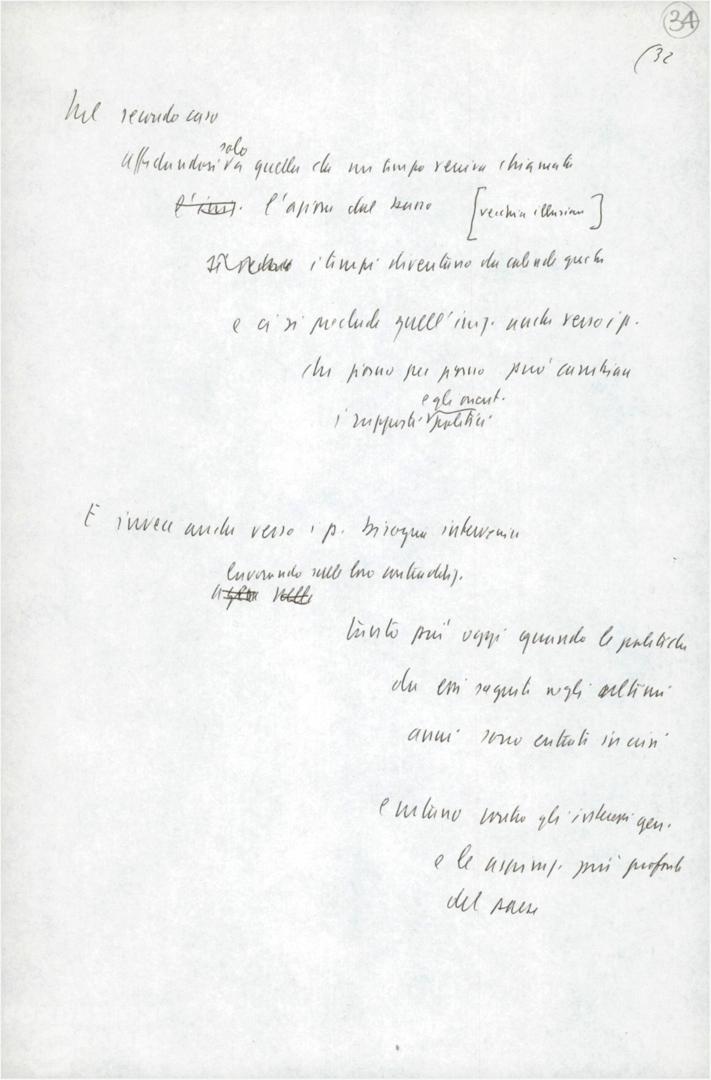 34
(32
Nel secondo caso
solo
affidandosi a quella che un tempo veniva chiamata
l'azione dal basso [vecchia illusione]
i tempi diventano da calende greche
e ci si preclude quell'iniz. anche verso i p.
che giorno per giorno può cambiare
e gli orient.
i rapporti politici
E invece anche verso i p. bisogna intervenire
lavorando sulle loro contraddiz.
tanto più oggi quando le politiche
da essi seguite negli ultimi
anni sono entrate in crisi
e urtano contro gli interessi gen.
e le aspiraz. più profonde
del paese